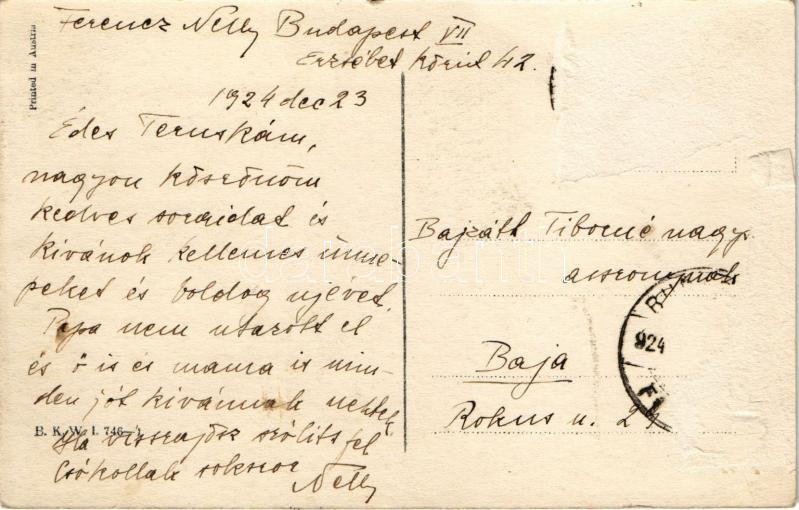 Ferencz Nelly Budapest VII
Erzsébet körút 42.
Printed in Austria
1924 dec 23
Édes Teruskám,
nagyon köszönöm
kedves soraidat és
kivánok kellemes ünne-
peket és boldog ujévet.
Papa nem utazott el
és ő is és mama is min-
den jót kivánnak nektek
B. K. W. I. 746-
Ha visszajösz szólíts fel
Csókollak sokszor
Nelly
Bajzáth Tiborné nagys.
asszonynak
Baja
Rokus u. 24
924
darabanth